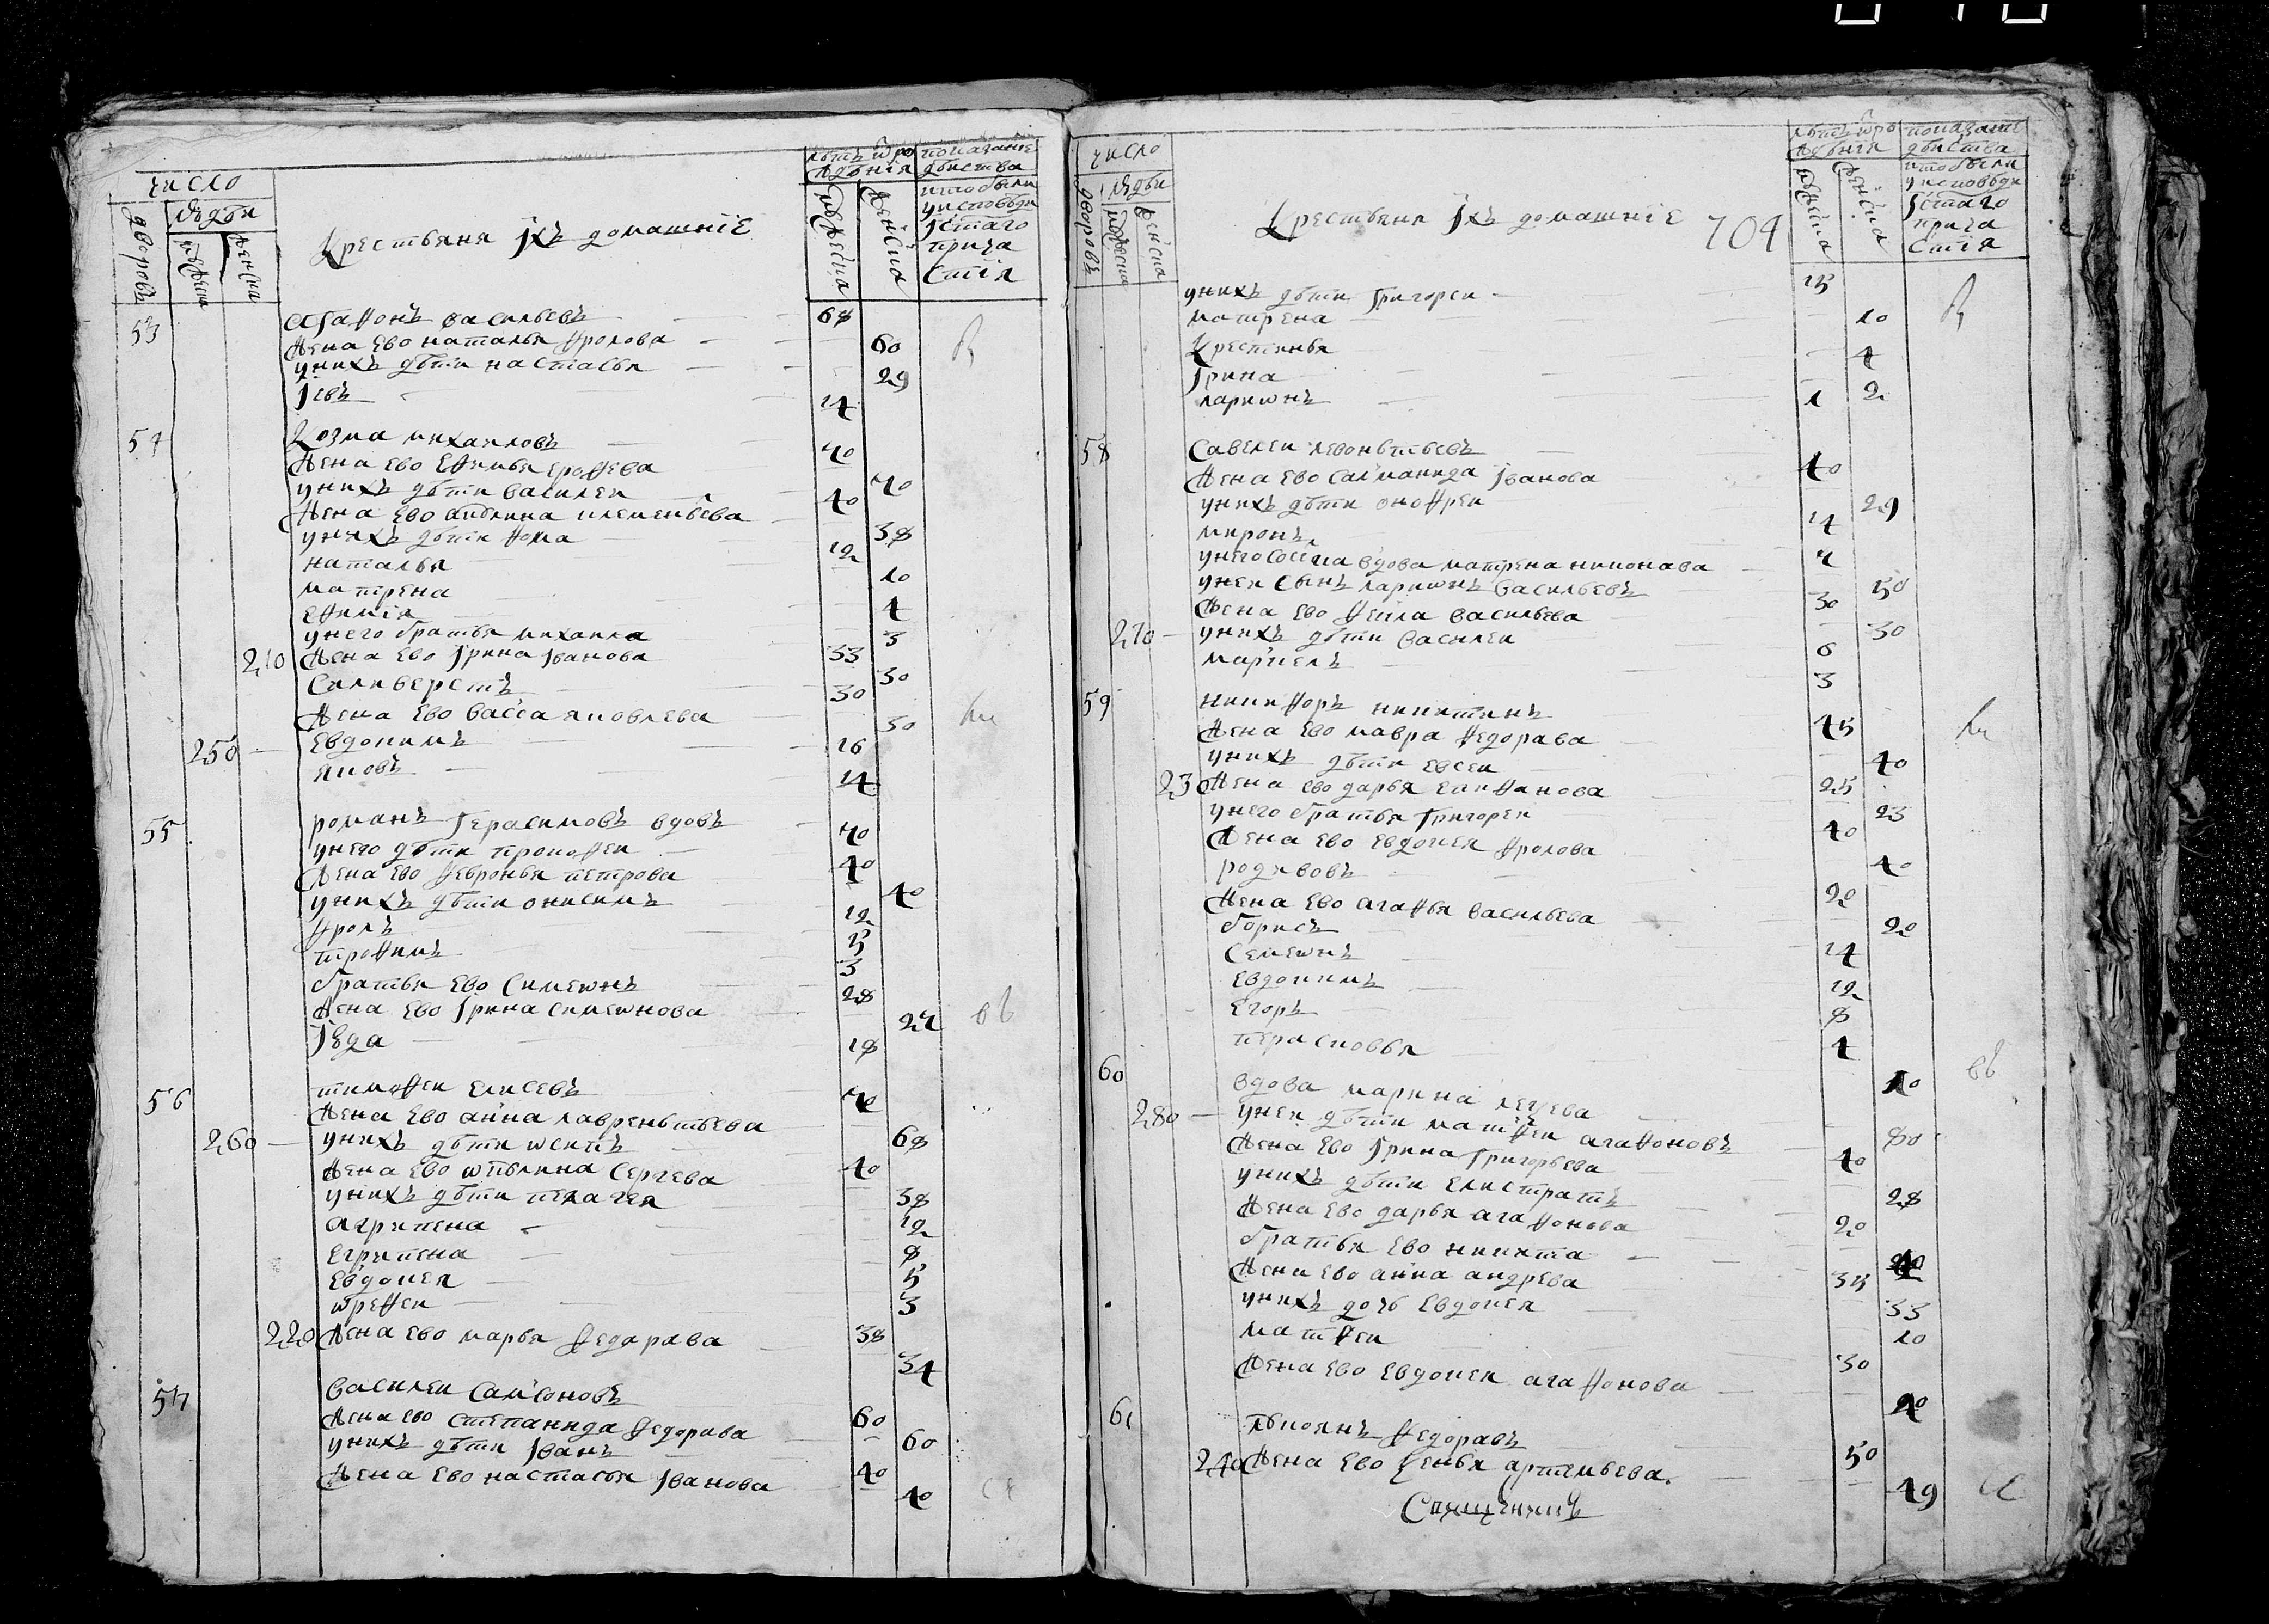 число
людѣи
дворовъ
мужеска
женска
Крестьяня Ихъ домашніе
лѣтъ ѿро
жденія
мужеска
женска
показаніе
дѣиства
кто были
уисповѣди
Істаго
прича
стія
53 Агафонъ васильевъ 68
жена ево наталья фролова 60
унихъ дѣти настасья 29
Іевъ 14
54 Козма михаиловъ 70
жена ево Ефимья ерофева 70
унихъ дѣти василеи 40
жена ево акѵлина клементьева 38
унихъ дѣти фома 12
наталья 10
матрена 4
ефимія 3
унего братья михаила 33
210 жена ево Ірина Іванова 30
Силиверстъ 30
жена ево васса яковлева 30
250 Евдокимъ 16
яковъ 14
55 романъ Герасимовъ вдовъ 70
унего дѣти прокофеи 40
жена ево февронья петрова 40
унихъ дѣти онисимъ 12
фролъ 5
трофимъ 3
братья ево Симеѡнъ 28
жена ево Ірина симеѡнова 27
Іуда 18
56 тимофеи елисевъ 70
жена ево анна лаврентьева 68
260 унихъ дѣти ѡсипъ 40
жена ево ѡкѵлина Сергева 38
унихъ дѣти пелагея 12
агрипена 8
Егрипена 5
Евдокея 3
ѡрефеи 38
220 жена ево марья федарава 34
57 василеи Самсоновъ 60
жена ево степанида федорава 60
унихъ дѣти Іванъ 40
жена ево настасья Іванова 40
число
людѣи
дворовъ
мужеска
женска
Крестьяня Ихъ домашніе 704
лѣтъ ѿро
жденія
мужеска
женска
показаніе
дѣиства
кто были
уисповѣди
Істаго
прича
стія
унихъ дѣти Григореи 15
матрена 10
Крестинья 4
Ірина 2
лариѡнъ 1
58 Савелеи левонтьевъ 40
жена ево Салманида Іванова 29
унихъ дѣти онофреи 14
миронъ 7
унего вдова матрена никонава 50
унеи сынъ лариѡнъ васильевъ 30
жена ево фекла васильева 30
270 унихъ дѣти василеи 6
маркелъ 3
59 никифоръ никитинъ 45
жена ево мавра федорава 40
унихъ дѣти евсеи 25
230 жена ево дарья епифанова 23
унего братья Григореи 40
жена ево евдокея фролова 40
родивонъ 20
жена ево агафья васильева 20
борисъ 14
Семеѡнъ 12
Евдокимъ 8
Егоръ 4
парасковья 10
60 вдова марина 80
280 унеи дѣти матфеи агафоновъ 40
жена ево Ірина Григорьева 28
унихъ дѣти елистратъ 20
жена ево дарья агафонова
братья ево никита 35
жена ево анна андрева 33
унихъ дочь евдокея 10
матфеи 30
жена ево евдокея агафонова
61 лукоянъ федоравъ 50
240 жена ево артемьева 49
Священникъ